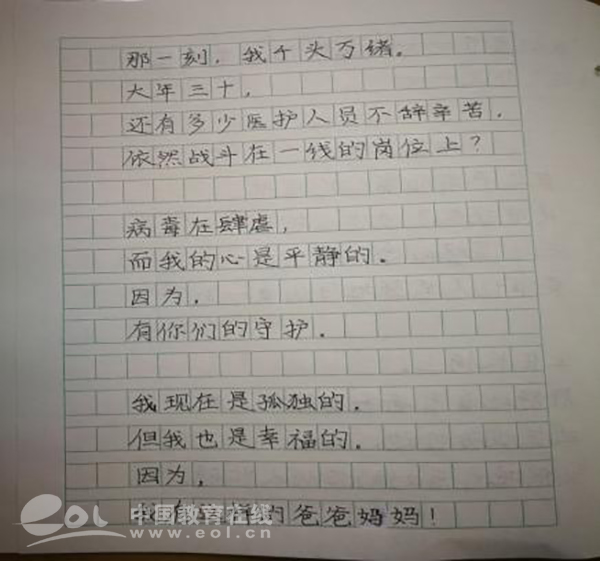 那一刻，我千头万绪。
大年三十，
还有多少医护人员不辞辛苦，
依然战斗在一线的岗位上？
病毒在肆虐，
而我的心是平静的。
因为，
有你们的守护。
我现在是孤独的。
但我也是幸福的。
因为，
我有的爸爸妈妈！
eol 中国教育在线
www.eol.cn